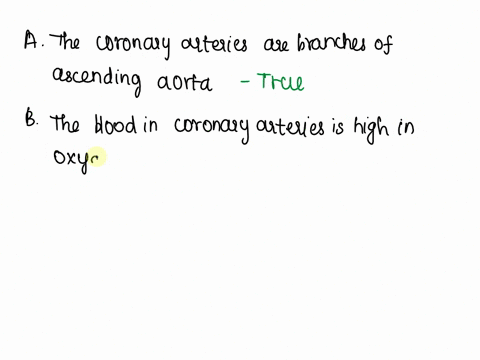 A. The coronary arteries are branches of
ascending aorta - True
B. The blood in coronary arteries is high in
oxyg